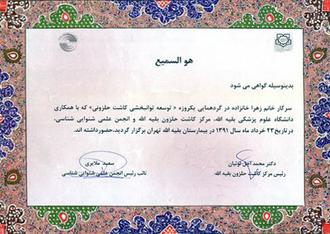 هو السمیع
بدینوسیله گواهی می شود
سرکار خانم زهرا خانزاده در گردهمایی یکروزه « توسعه توانبخشی کاشت حلزونی» که با همکاری
دانشگاه علوم پزشکی بقیه الله، مرکز کاشت حلزون بقیه الله و انجمن علمی شنوایی شناسی،
در تاریخ ۲۳ خرداد ماه سال ۱۳۹۱ در بیمارستان بقیه الله تهران برگزار گردید، حضورداشته اند.
دکتر محمد اجل لوئیان
رئیس مرکز کاشت حلزون بقیه الله
سعید ملایری
نائب رئیس انجمن علمی شنوایی شناسی